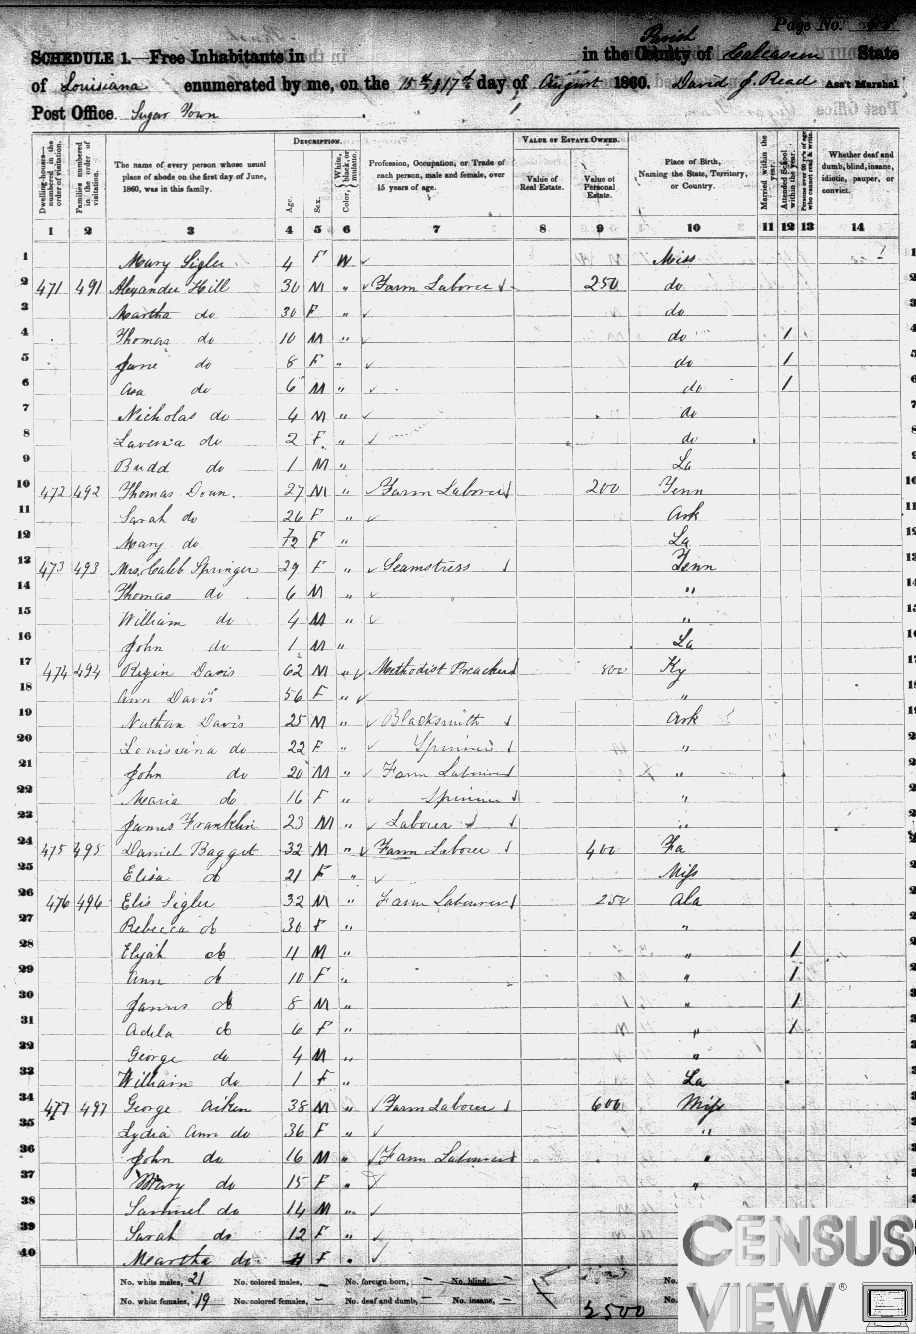 Page No.
SCHEDULE 1.—Free Inhabitants in in the County Parish of Calcasieu State
of Louisiana enumerated by me, on the 15th & 17th day of August 1860. David J. Read Ass't Marshal
Post Office Sugar Town
Dwelling-houses—numbered in the order of visitation.
Families numbered in the order of visitation.
The name of every person whose usual place of abode on the first day of June, 1860, was in this family.
DESCRIPTION.
Age.
Sex.
Color, White, black, or mulatto.
Profession, Occupation, or Trade of each person, male and female, over 15 years of age.
VALUE OF ESTATE OWNED.
Value of Real Estate.
Value of Personal Estate.
Place of Birth, Naming the State, Territory, or Country.
Married within the year.
Attended School within the year.
Persons over 20 y'rs of age who cannot read & write.
Whether deaf and dumb, blind, insane, idiotic, pauper, or convict.
1 2 3 4 5 6 7 8 9 10 11 12 13 14
1 Mary Sigler 4 F W Miss
2 471 491 Alexander Hill 30 M " Farm Laborer 250 do
3 Martha do 30 F " do
4 Thomas do 10 M " do 1
5 Jane do 8 F " do 1
6 Asa do 6 M " do 1
7 Nicholas do 4 M " do
8 Laverna do 2 F " do
9 Budd do 1 M " La
10 472 492 Thomas 27 M " Farm Laborer 200 Tenn
11 Sarah do 26 F " Ark
12 Mary do F " La
13 473 493 Mrs. Caleb Springer 29 F " Seamstress Tenn
14 Thomas do 6 M " "
15 William do 4 M " "
16 John do 1 M " La
17 474 494 Rezin Davis 62 M " Methodist Preacher 800 Ky
18 Ann Davis 56 F " "
19 Nathan Davis 25 M " Blacksmith Ark
20 Louisiana do 22 F " Spinner "
21 John do 20 M " Farm Labourer "
22 Maria do 16 F " Spinner "
23 James Franklin 23 M " Laborer "
24 475 495 Daniel Baggit 32 M " Farm Laborer 400 Fa
25 Elisa do 21 F " Miss
26 476 496 Elis Sigler 32 M " Farm Labourer 250 Ala
27 Rebecca do 30 F " "
28 Elijah do 11 M " " 1
29 Ann do 10 F " " 1
30 James do 8 M " " 1
31 Adela do 6 F " " 1
32 George do 4 M " "
33 William do 1 F " La
34 477 497 George Aiken 38 M " Farm Laborer 600 Miss
35 Lydia Ann do 36 F " "
36 John do 16 M " Farm Labourer "
37 Mary do 15 F " "
38 Samuel do 14 M "
39 Sarah do 12 F "
40 Martha do F "
No. white males, 21 No. colored males, – No. foreign born, – No. blind, – No.
No. white females, 19 No. colored females, – No. deaf and dumb, – No. insane, – 2500 No.
CENSUS
VIEW®